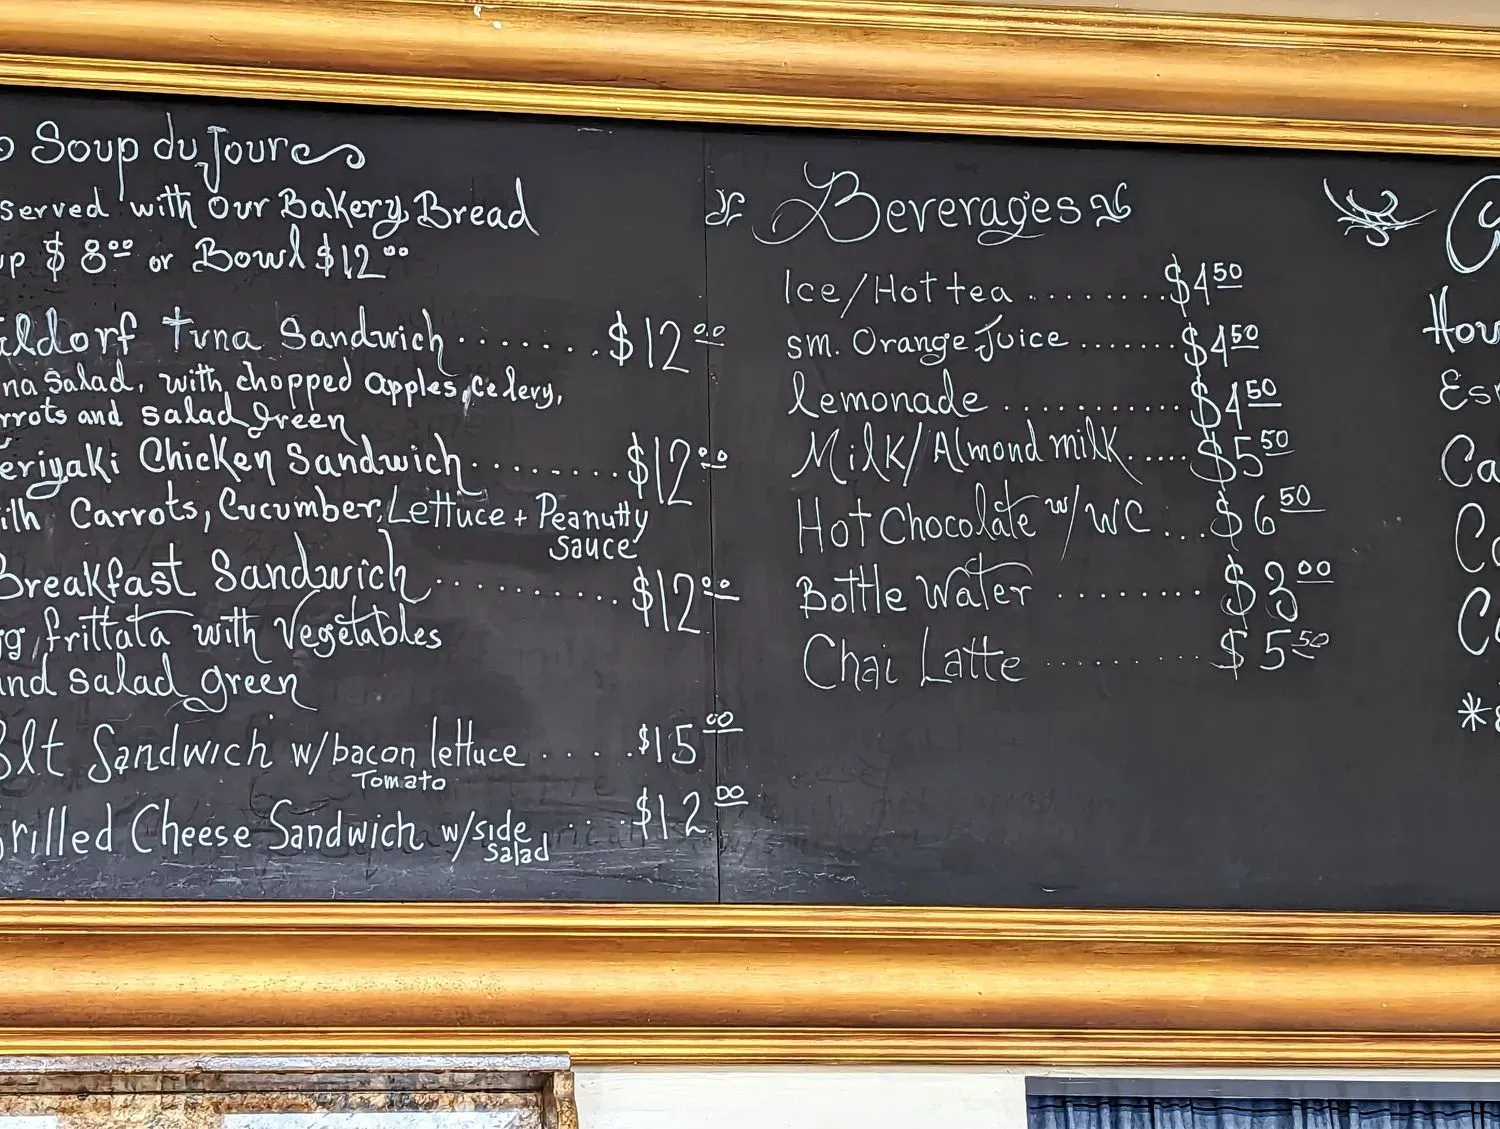 Soup du Jour
served with our Bakery Bread
up $8.00 or Bowl $12.00
aldorf Tuna Sandwich . . . . . . . $12.00
na Salad, with chopped apples, celery,
rrots and salad green
eriyaki Chicken Sandwich . . . . . . . . $12.00
ith Carrots, Cucumber, Lettuce + Peanutty
sauce
Breakfast Sandwich . . . . . . . . . $12.00
gg frittata with Vegetables
and salad green
Blt Sandwich w/bacon lettuce . . . . . $15.00
Tomato
rilled Cheese Sandwich w/side . . . . $12.00
salad
Beverages
Ice/Hot tea . . . . . . . . $4.50
sm. Orange Juice . . . . . . . $4.50
lemonade . . . . . . . . . . . $4.50
Milk/Almond milk . . . . . $5.50
Hot Chocolate w/WC . . . $6.50
Bottle Water . . . . . . . . $3.00
Chai Latte . . . . . . . . . . $5.50
Hou
Es
Ca